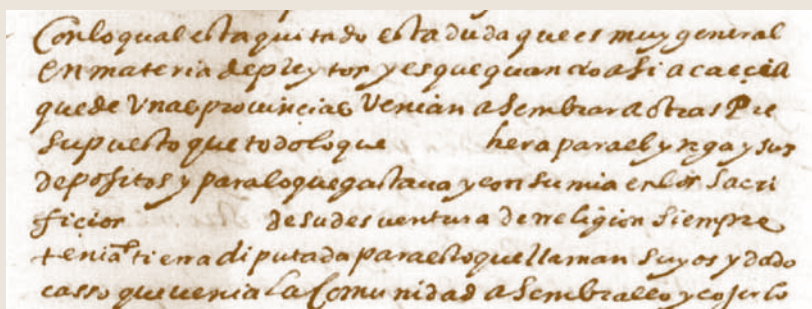 Con lo qual esta quitado esta duda que es muy general
en materia de pleytos y es que quando asi acaecia
que de Unas provincias Venian a Sembrar a otras Pre
supuesto que todo lo que hera para el ynga y sus
depositos y para lo que gastava y consumia en los Sacri
ficios de su desventura de rreligion Siempre
tenia tierra diputada para esto que llaman Suyos y dado
casso que venia La Comunidad a Sembrallo y cojerlo